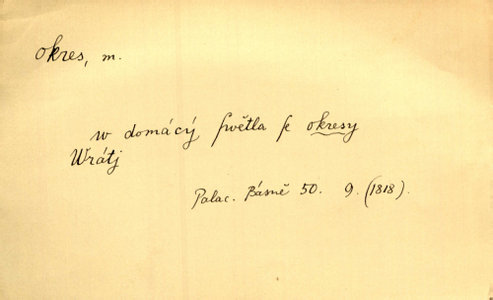 okres, m.
w domácý swětla se okresy
Wrátj
Palac. Básně 50. 9. (1818).